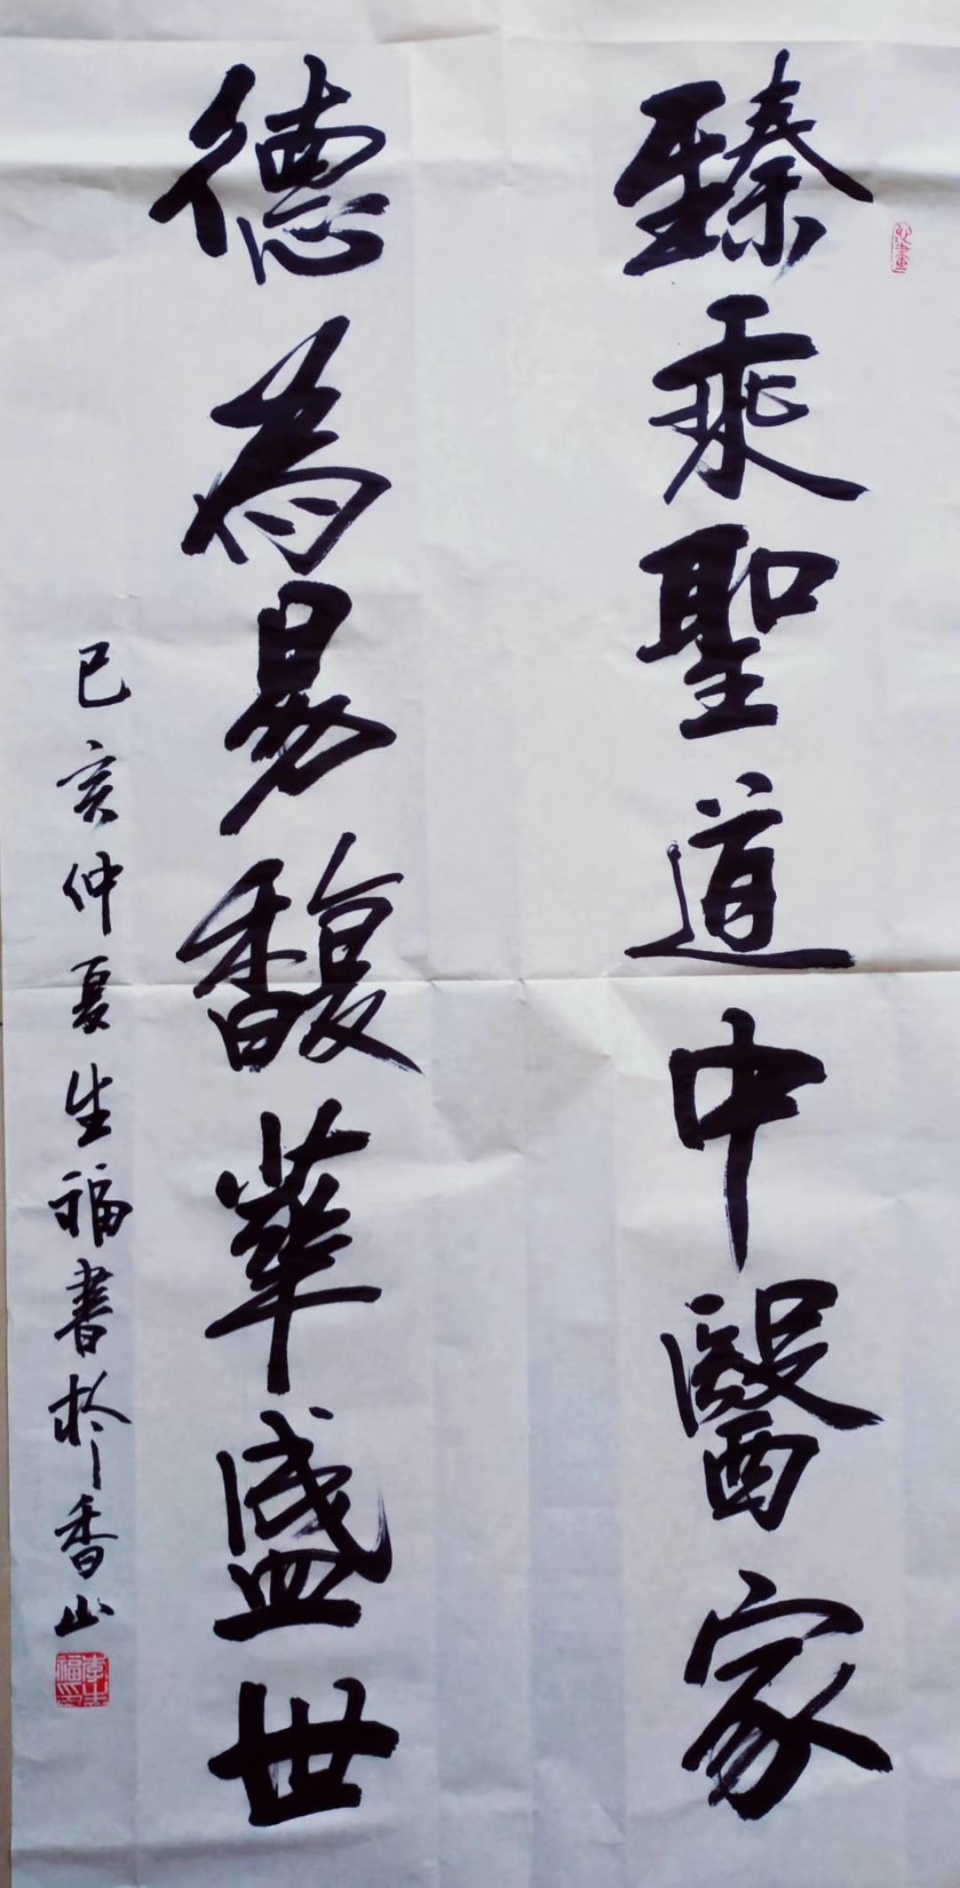 臻乘聖道中醫家
德為易馥華盛世
己亥仲夏生福書於香山